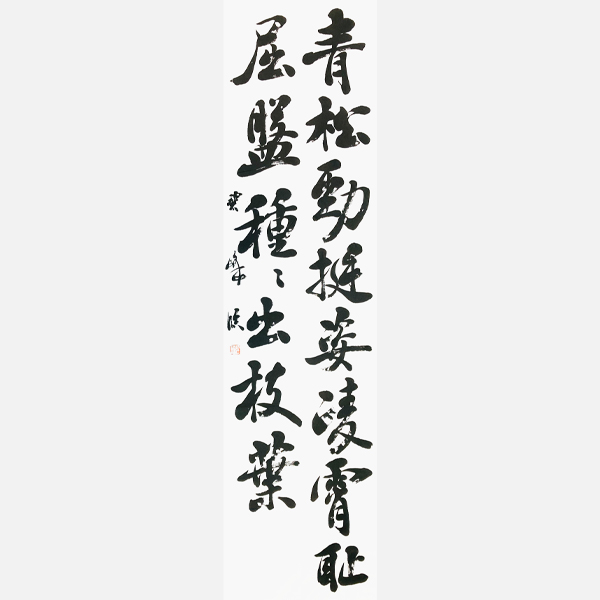 青松勁挺姿凌霄恥
屈盤種〻出枝葉